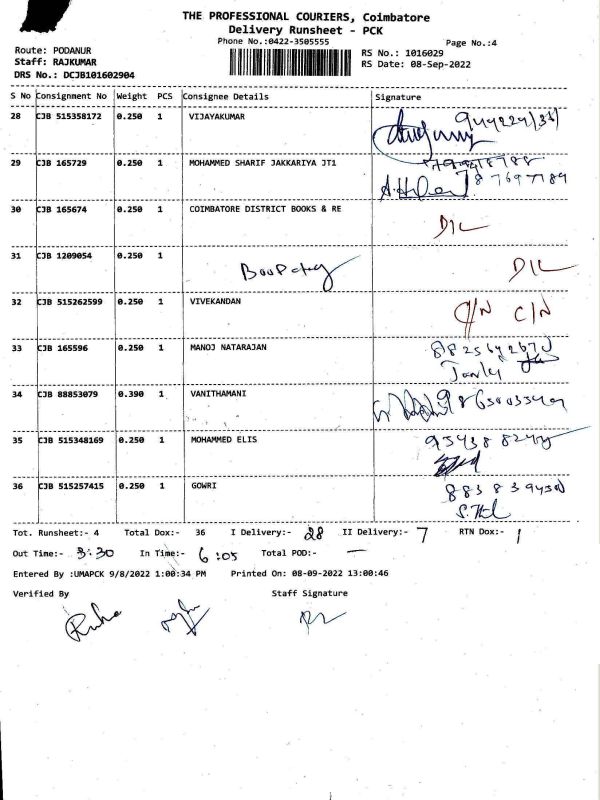 THE PROFESSIONAL COURIERS, Coimbatore
Delivery Runsheet - PCK
Phone No.:0422-3505555
Page No.:4
Route: PODANUR
RS No.: 1016029
Staff: RAJKUMAR
RS Date: 08-Sep-2022
DRS No.: DCJB101602904
S No Consignment No Weight PCS Consignee Details Signature
28 CJB 515358172 0.250 1 VIJAYAKUMAR
29 CJB 165729 0.250 1 MOHAMMED SHARIF JAKKARIYA JT1
30 CJB 165674 0.250 1 COIMBATORE DISTRICT BOOKS & RE D/L
31 CJB 1209054 0.250 1 D/L
32 CJB 515262599 0.250 1 VIVEKANDAN C/N C/N
33 CJB 165596 0.250 1 MANOJ NATARAJAN
34 CJB 88853079 0.390 1 VANITHAMANI
35 CJB 515348169 0.250 1 MOHAMMED ELIS
36 CJB 515257415 0.250 1 GOWRI
Tot. Runsheet:- 4 Total Dox:- 36 I Delivery:- 28 II Delivery:- 7 RTN Dox:- 1
Out Time:- 3:30 In Time:- 6:05 Total POD:- —
Entered By :UMAPCK 9/8/2022 1:00:34 PM Printed On: 08-09-2022 13:00:46
Verified By Staff Signature